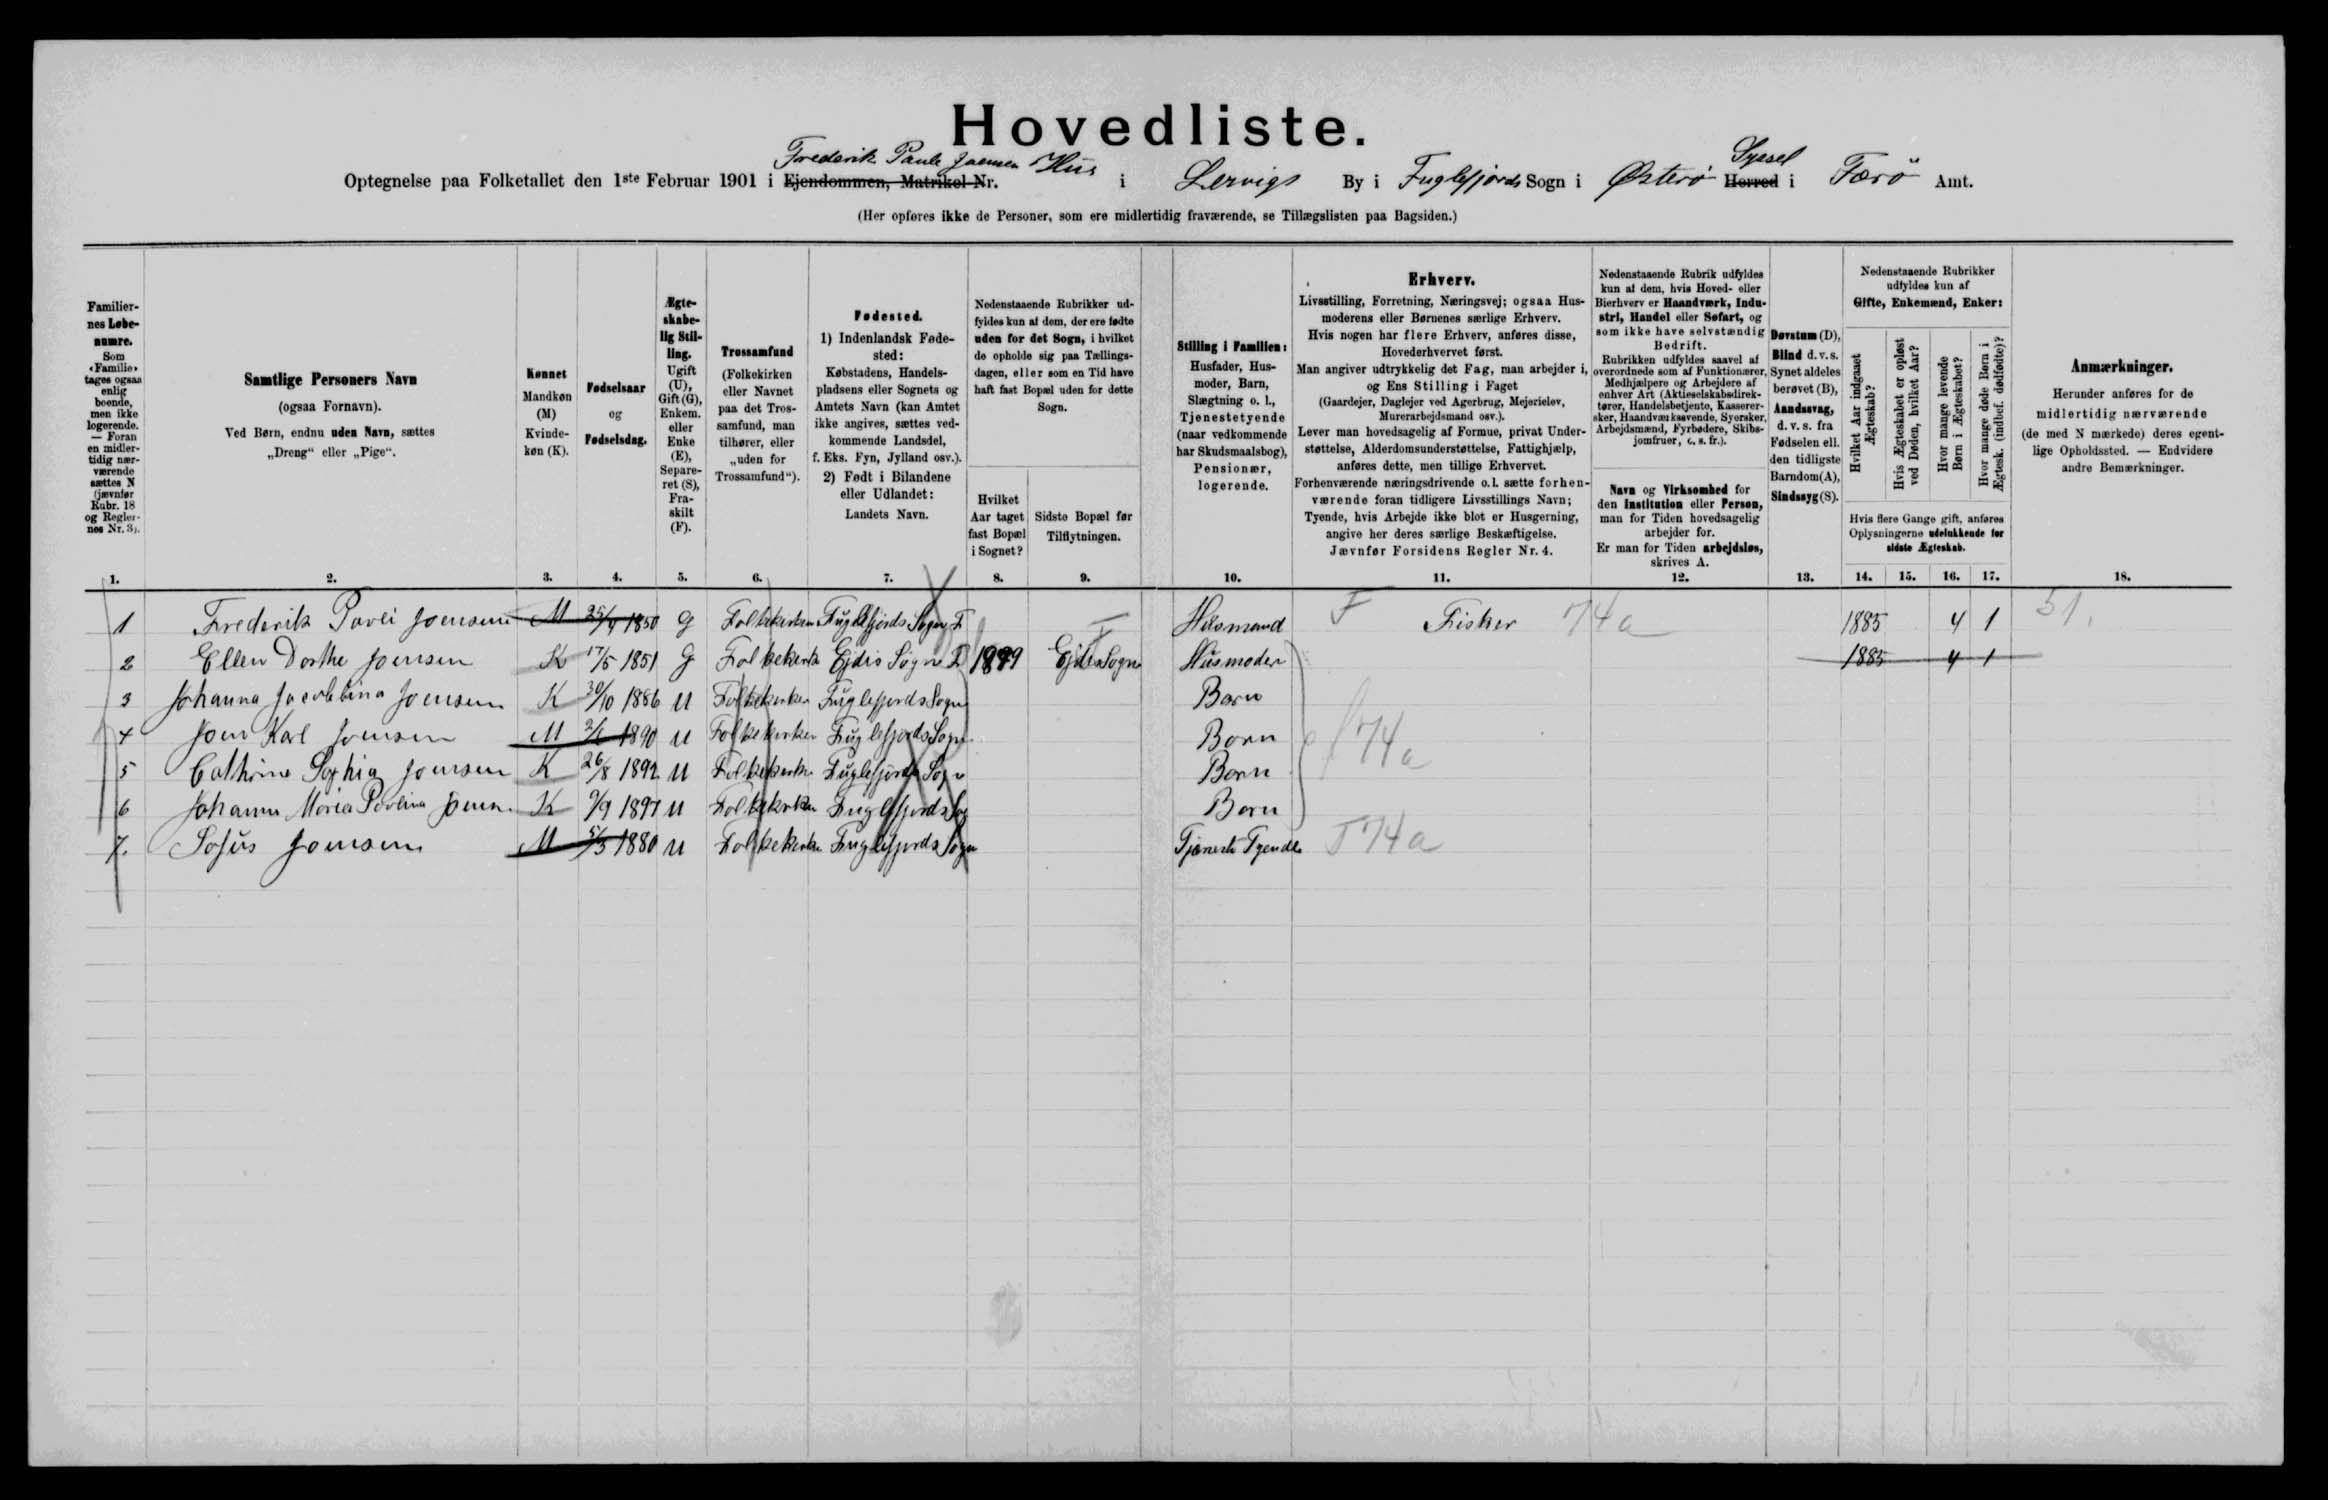 Hovedliste.
Frederik Paule Joensen Hus
Syssel
Optegnelse paa Folketallet den 1ste Februar 1901 i Ejendommen, Matrikel-Nr. i Lervigs By i Fuglefjords Sogn i Østerø Herred i Færø Amt.
(Her opføres ikke de Personer, som ere midlertidig fraværende, se Tillægslisten paa Bagsiden.)
Familiernes Løbenumre.
Som «Familie» tages ogsaa enlig boende, men ikke logerende. — Foran en midlertidig nærværende sættes N (jævnfør Rubr. 18 og Reglernes Nr. 3).
Samtlige Personers Navn
(ogsaa Fornavn).
Ved Børn, endnu uden Navn, sættes
„Dreng“ eller „Pige“.
Kønnet
Mandkøn (M)
Kvindekøn (K).
Fødselsaar
og
Fødselsdag.
Ægteskabelig Stilling.
Ugift (U), Gift (G), Enkem. eller Enke (E), Separeret (S), Fraskilt (F).
Trossamfund
(Folkekirken eller Navnet paa det Trossamfund, man tilhører, eller „uden for Trossamfund“).
Fødested.
1) Indenlandsk Fødested:
Købstadens, Handelspladsens eller Sognets og Amtets Navn (kan Amtet ikke angives, sættes vedkommende Landsdel, f. Eks. Fyn, Jylland osv.).
2) Født i Bilandene eller Udlandet:
Landets Navn.
Nedenstaaende Rubrikker udfyldes kun af dem, der ere fødte uden for det Sogn, i hvilket de opholde sig paa Tællingsdagen, eller som en Tid have haft fast Bopæl uden for dette Sogn.
Hvilket Aar taget fast Bopæl i Sognet?
Sidste Bopæl før Tilflytningen.
Stilling i Familien:
Husfader, Husmoder, Barn, Slægtning o. l., Tjenestetyende (naar vedkommende har Skudsmaalsbog), Pensionær, logerende.
Erhverv.
Livsstilling, Forretning, Næringsvej; ogsaa Husmoderens eller Børnenes særlige Erhverv.
Hvis nogen har flere Erhverv, anføres disse, Hovederhvervet først.
Man angiver udtrykkelig det Fag, man arbejder i, og Ens Stilling i Faget
(Gaardejer, Daglejer ved Agerbrug, Mejerielev, Murerarbejdsmand osv.).
Lever man hovedsagelig af Formue, privat Understøttelse, Alderdomsunderstøttelse, Fattighjælp, anføres dette, men tillige Erhvervet.
Forhenværende næringsdrivende o. l. sætte forhenværende foran tidligere Livsstillings Navn;
Tyende, hvis Arbejde ikke blot er Husgerning, angive her deres særlige Beskæftigelse.
Jævnfør Forsidens Regler Nr. 4.
Nedenstaaende Rubrik udfyldes kun af dem, hvis Hoved- eller Bierhverv er Haandværk, Industri, Handel eller Søfart, og som ikke have selvstændig Bedrift.
Rubrikken udfyldes saavel af overordnede som af Funktionærer, Medhjælpere og Arbejdere af enhver Art (Aktieselskabsdirektører, Handelsbetjente, Kasserersker, Haandværkssvende, Syersker, Arbejdsmænd, Fyrbødere, Skibsjomfruer, o. s. fr.).
Navn og Virksomhed for den Institution eller Person, man for Tiden hovedsagelig arbejder for.
Er man for Tiden arbejdsløs, skrives A.
Døvstum (D),
Blind d. v. s. Synet aldeles berøvet (B),
Aandssvag, d. v. s. fra Fødselen ell. den tidligste Barndom (A),
Sindssyg (S).
Nedenstaaende Rubrikker udfyldes kun af
Gifte, Enkemænd, Enker:
Hvilket Aar indgaaet Ægteskab?
Hvis Ægteskabet er opløst ved Døden, hvilket Aar?
Hvor mange levende Børn i Ægteskabet?
Hvor mange døde Børn i Ægtesk. (indbef. dødfødte)?
Hvis flere Gange gift, anføres Oplysningerne udelukkende for sidste Ægteskab.
Anmærkninger.
Herunder anføres for de midlertidig nærværende (de med N mærkede) deres egentlige Opholdssted. — Endvidere andre Bemærkninger.
1. 2. 3. 4. 5. 6. 7. 8. 9. 10. 11. 12. 13. 14. 15. 16. 17. 18.
1 Frederik Pavli Joensen M 25/9 1850 G Folkekirken Fuglefjords Sogn F Husmand F Fisker 74a 1885 4 1 51.
2 Ellen Dorthe Joensen K 17/5 1851 G Folkekirke Ejdis Sogn F Ejdis Sogn Husmoder 1885 4 1
3 Johanna Jacobbina Joensen K 30/10 1886 U Folkekirken Fuglefjords Sogn Barn
4 Joen Karl Joensen M 1890 U Folkekirken Fuglefjords Sogn Barn f 74a
5 Cathrine Sophia Joensen K 26/8 1892 U Folkekirke Fuglefjords Sogn Barn
6 Johanne Maria Povlina Joensen K 9/9 1897 U Folkekirken Fuglefjords Sog Barn
7. Sofus Joensen M 5/3 1880 U Folkekirke Fuglefjords Sogn Tjeneste Tyende T 74a